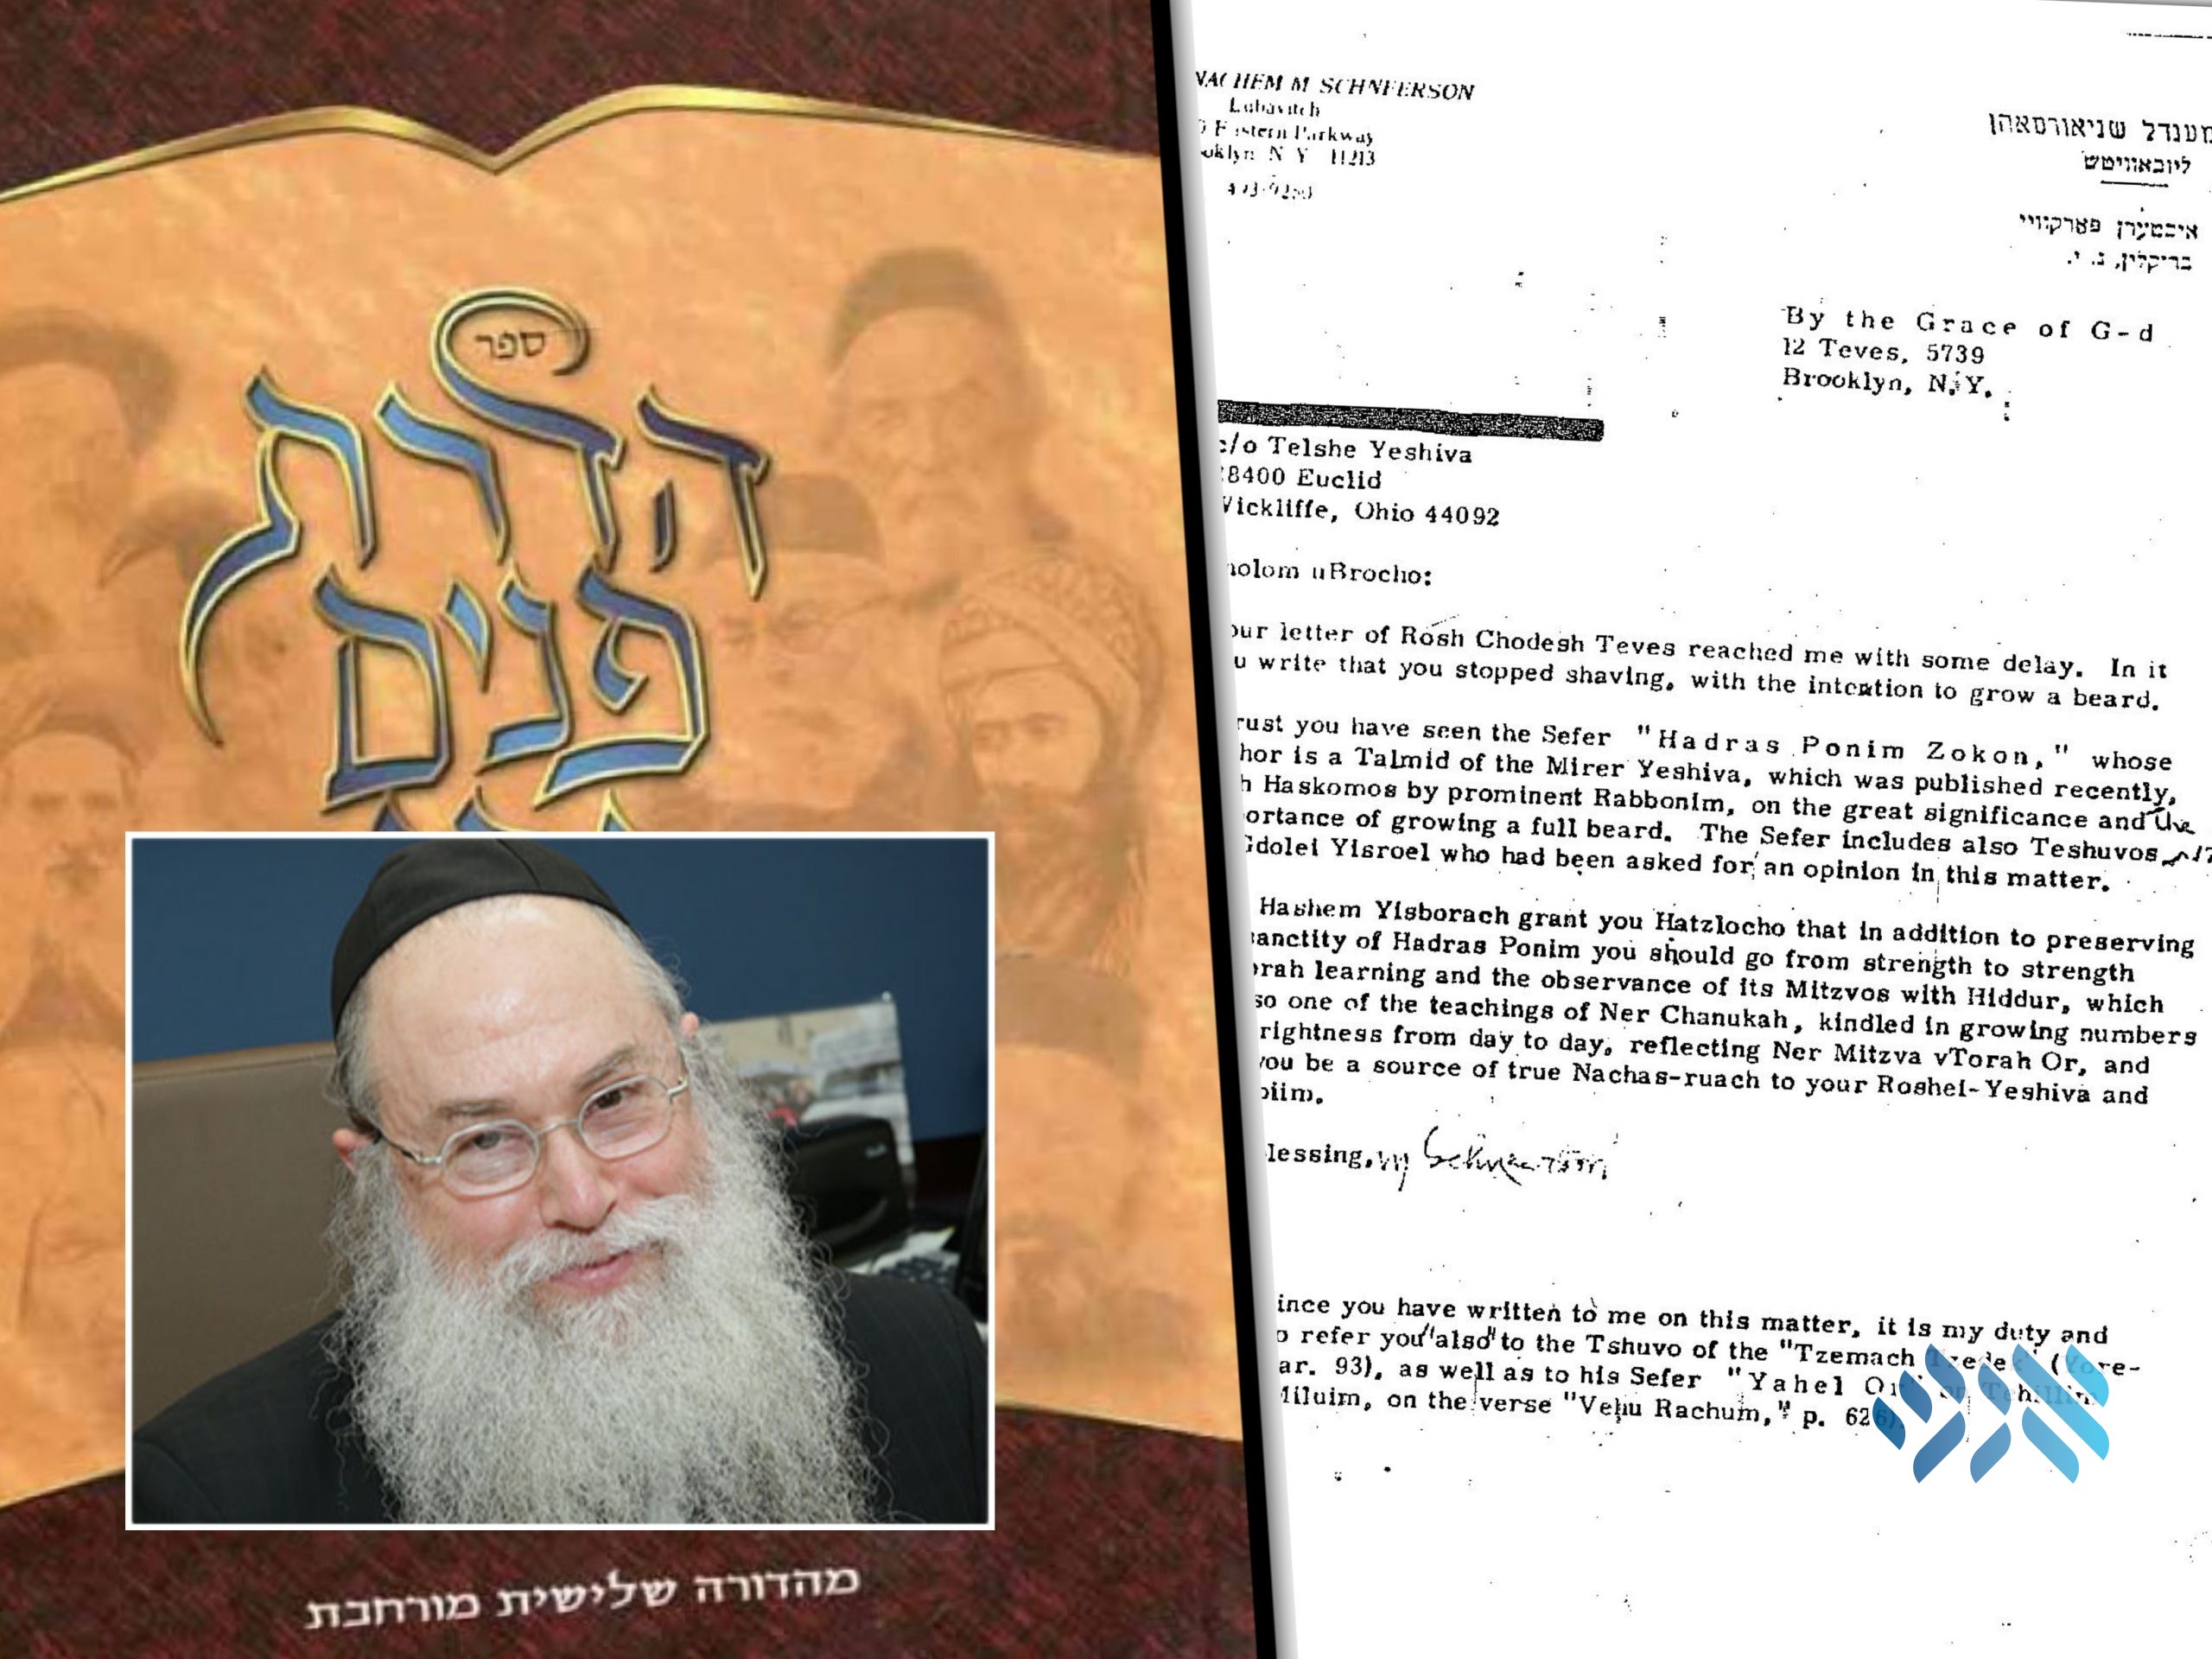 ספר
הדרת
פנים
מהדורה שלישית מורחבת
NACHEM M SCHNEERSON
Lubavitch
Eastern Parkway
oklyn N Y 11213
מענדל שניאורסאהן
ליובאוויטש
איסטערן פארקוויי
ברוקלין, נ. י.
By the Grace of G-d
12 Teves, 5739
Brooklyn, N.Y.
c/o Telshe Yeshiva
28400 Euclid
Wickliffe, Ohio 44092
holom uBrocho:
our letter of Rosh Chodesh Teves reached me with some delay. In it
u write that you stopped shaving, with the intention to grow a beard.
rust you have seen the Sefer "Hadras Ponim Zokon," whose
hor is a Talmid of the Mirer Yeshiva, which was published recently,
h Haskomos by prominent Rabbonim, on the great significance and the
ortance of growing a full beard. The Sefer includes also Teshuvos
Gdolei Yisroel who had been asked for an opinion in this matter.
Hashem Yisborach grant you Hatzlocho that in addition to preserving
sanctity of Hadras Ponim you should go from strength to strength
orah learning and the observance of its Mitzvos with Hiddur, which
so one of the teachings of Ner Chanukah, kindled in growing numbers
rightness from day to day, reflecting Ner Mitzva vTorah Or, and
you be a source of true Nachas-ruach to your Roshei-Yeshiva and
biim.
lessing, M Schneerson
ince you have written to me on this matter, it is my duty and
o refer you "also" to the Tshuvo of the "Tzemach Tzedek" (Yore-
ar. 93), as well as to his Sefer "Yahel Or" on Tehillim
Miluim, on the verse "Vehu Rachum," p. 626).
אנש